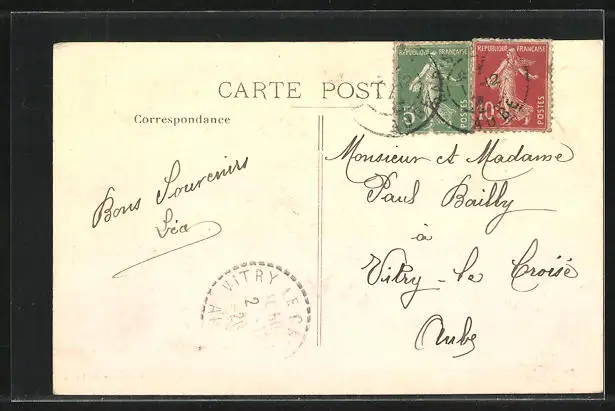 REPUBLIQUE FRANÇAISE
REPUBLIQUE FRANÇAISE
5
POSTES
10
POSTES
AUBE
CARTE POSTA
Correspondance
Bons Souvenirs
Léa
Monsieur et Madame
Paul Bailly
à
Vitry-le Croisé
Aube
VITRY LE CR
2